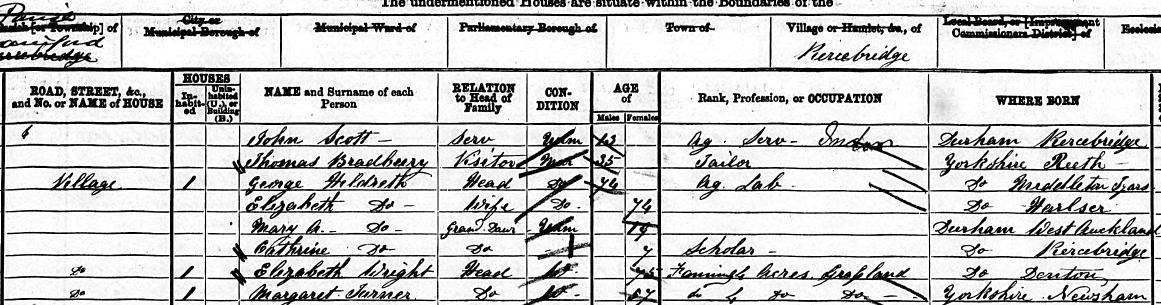 The undermentioned Houses are situate within the Boundaries of the
Parish [or Township] of
City or Municipal Borough of
Municipal Ward of
Parliamentary Borough of
Town of
Village or Hamlet, &c., of
Local Board, or [Improvement Commissioners District] of
Piercebridge
ROAD, STREET, &c., and No. or NAME of HOUSE
HOUSES
In-habit-ed
Unin-habited (U.), or Building (B.)
NAME and Surname of each Person
RELATION to Head of Family
CON-DITION
AGE of
Males Females
Rank, Profession, or OCCUPATION
WHERE BORN
John Scott Serv Unm Ag. Serv Indoor Durham Piercebridge
Thomas Bradberry Visitor Mar 35 Tailor Yorkshire Reeth
Village 1 George Hildreth Head Do 74 Ag. Lab Do Middleton Tyas
Elizabeth Do Wife Do 74 Do
Mary A. Do Grand Daur Unm 19 Durham West Auckland
Cathrine Do Do 7 Scholar Do Piercebridge
Do 1 Elizabeth Wright Head W 75 Farming Acres Do Denton
Do 1 Margaret Turner Do Do 67 Do Do Yorkshire Newsham